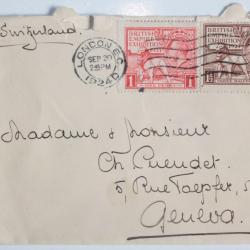 Switzerland.
LONDON.E.C.
SEP 20
2:15PM
1924
BRITISH
EMPIRE
EXHIBITION
1
BRITISH
EMPIRE
EXHIBITION
Madame & Monsieur
Ch Pueudet.
5, Rue Taepfer, 5
Geneva.